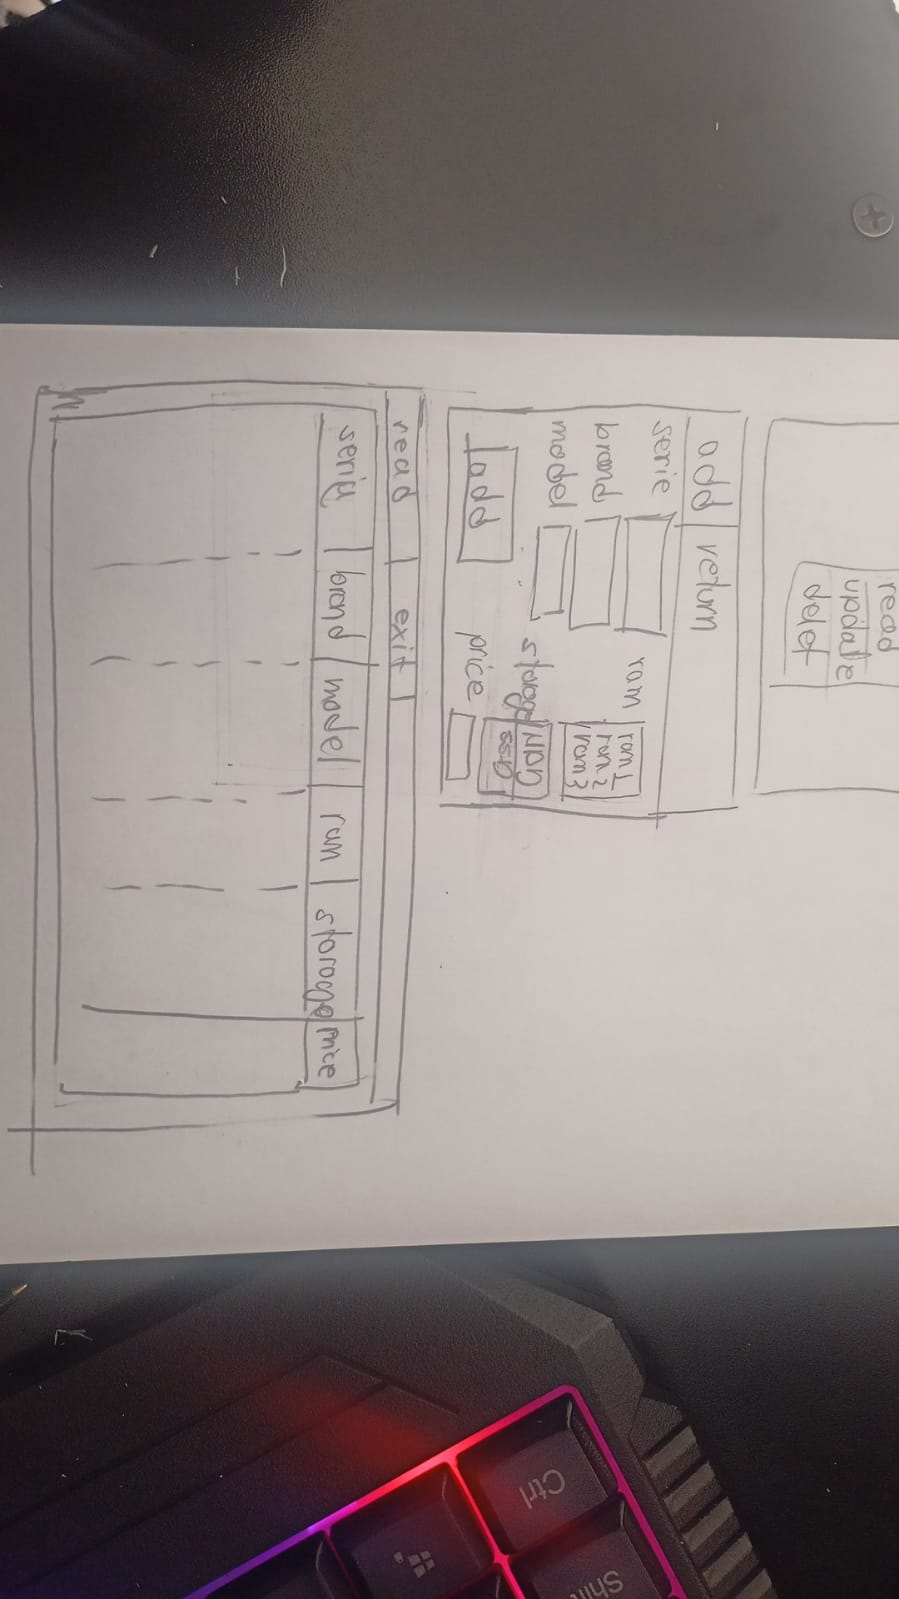 read
update
delet
add return
serie
brand
model
add
ram
ram 1
ram 2
ram 3
storage
HDD
SSD
price
read exit
seria brand model ram storage price
Ctrl
Shif